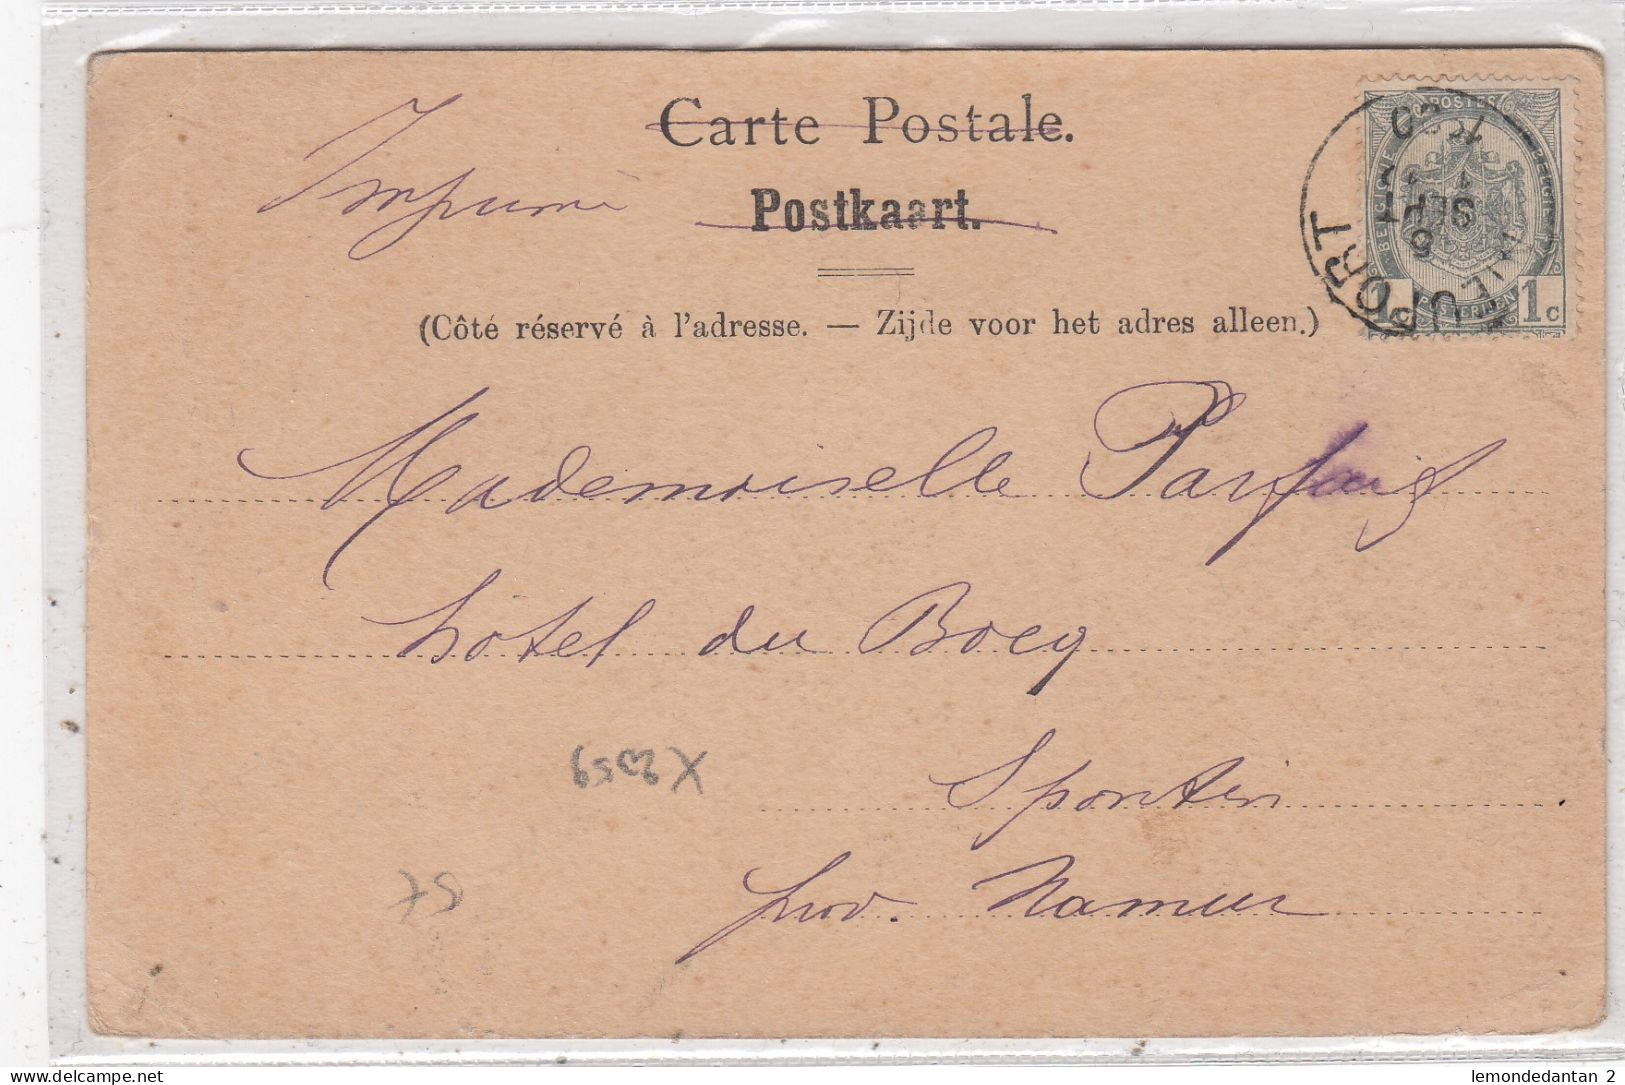 Carte Postale.
Imprimé
Postkaart.
(Côté réservé à l'adresse. — Zijde voor het adres alleen.)
POSTES
BELGIQUE
1c POSTERIJEN 1c
NIEUPORT
5
SEPT
Mademoiselle Parfait
hôtel du Bocq
Spontin
prov. Namur
75
delcampe.net
lemondedantan 2